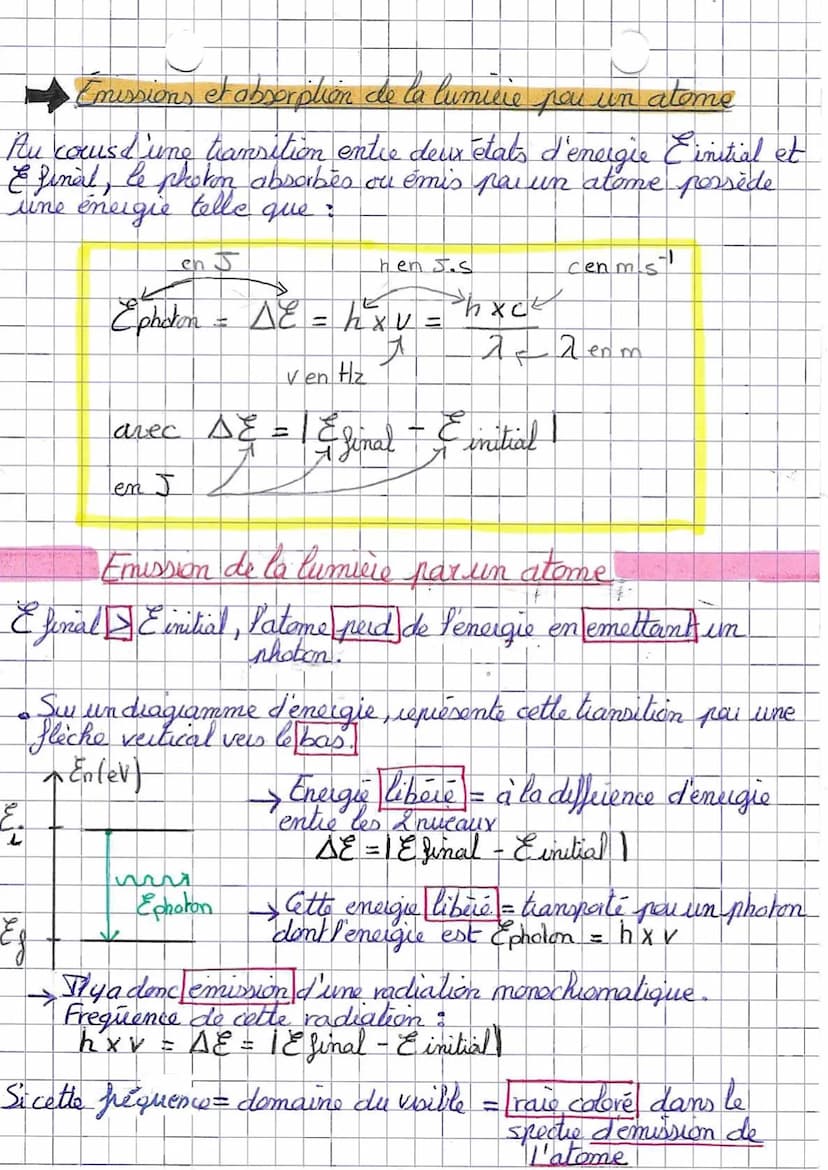 → Emissions et absorption de la lumière par un atome
Au cours d'une transition entre deux états d'énergie E initial et
E final, le photon absorbés ou émis par un atome possède
une énergie telle que :
en J h en J.s c en m.s⁻¹
E photon = ΔE = h x ν = h x c / λ
λ en m
ν en Hz
avec ΔE = | E final - E initial |
en J
Emission de la lumière par un atome
E final > E initial, l'atome perd de l'énergie en emettant un
photon.
• Sur un diagramme d'énergie, représente cette transition par une
flèche vertical vers le bas.
En (eV)
→ Energie libéré = à la différence d'énergie
entre les 2 niveaux
Ei
ΔE = | E final - E initial |
E photon
→ Cette energie libéré = transporté par un photon
Ef
dont l'énergie est E photon = h x ν
→ Il y a donc émission d'une radiation monochromatique.
Freqüence de cette radiation :
h x ν = ΔE = | E final - E initial |
Si cette fréquence = domaine du visible = raie coloré dans le
spectre d'émission de
l'atome